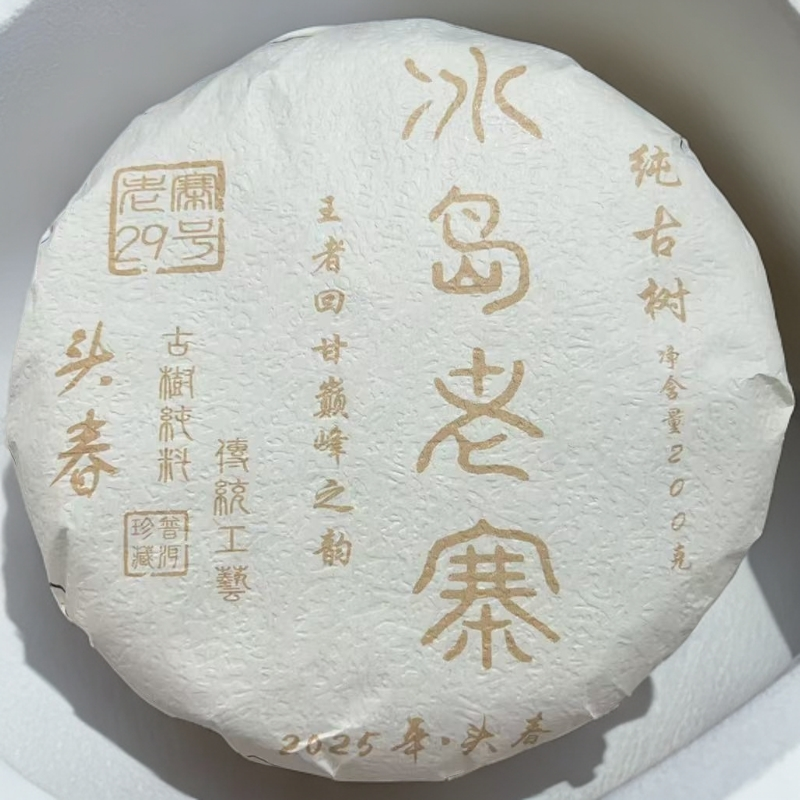 纯古树
净含量200克
冰岛老寨
王者回甘巅峰之韵
寨号
老29
傳統工藝
古樹純料
普洱
珍藏
头春
2025年·头春